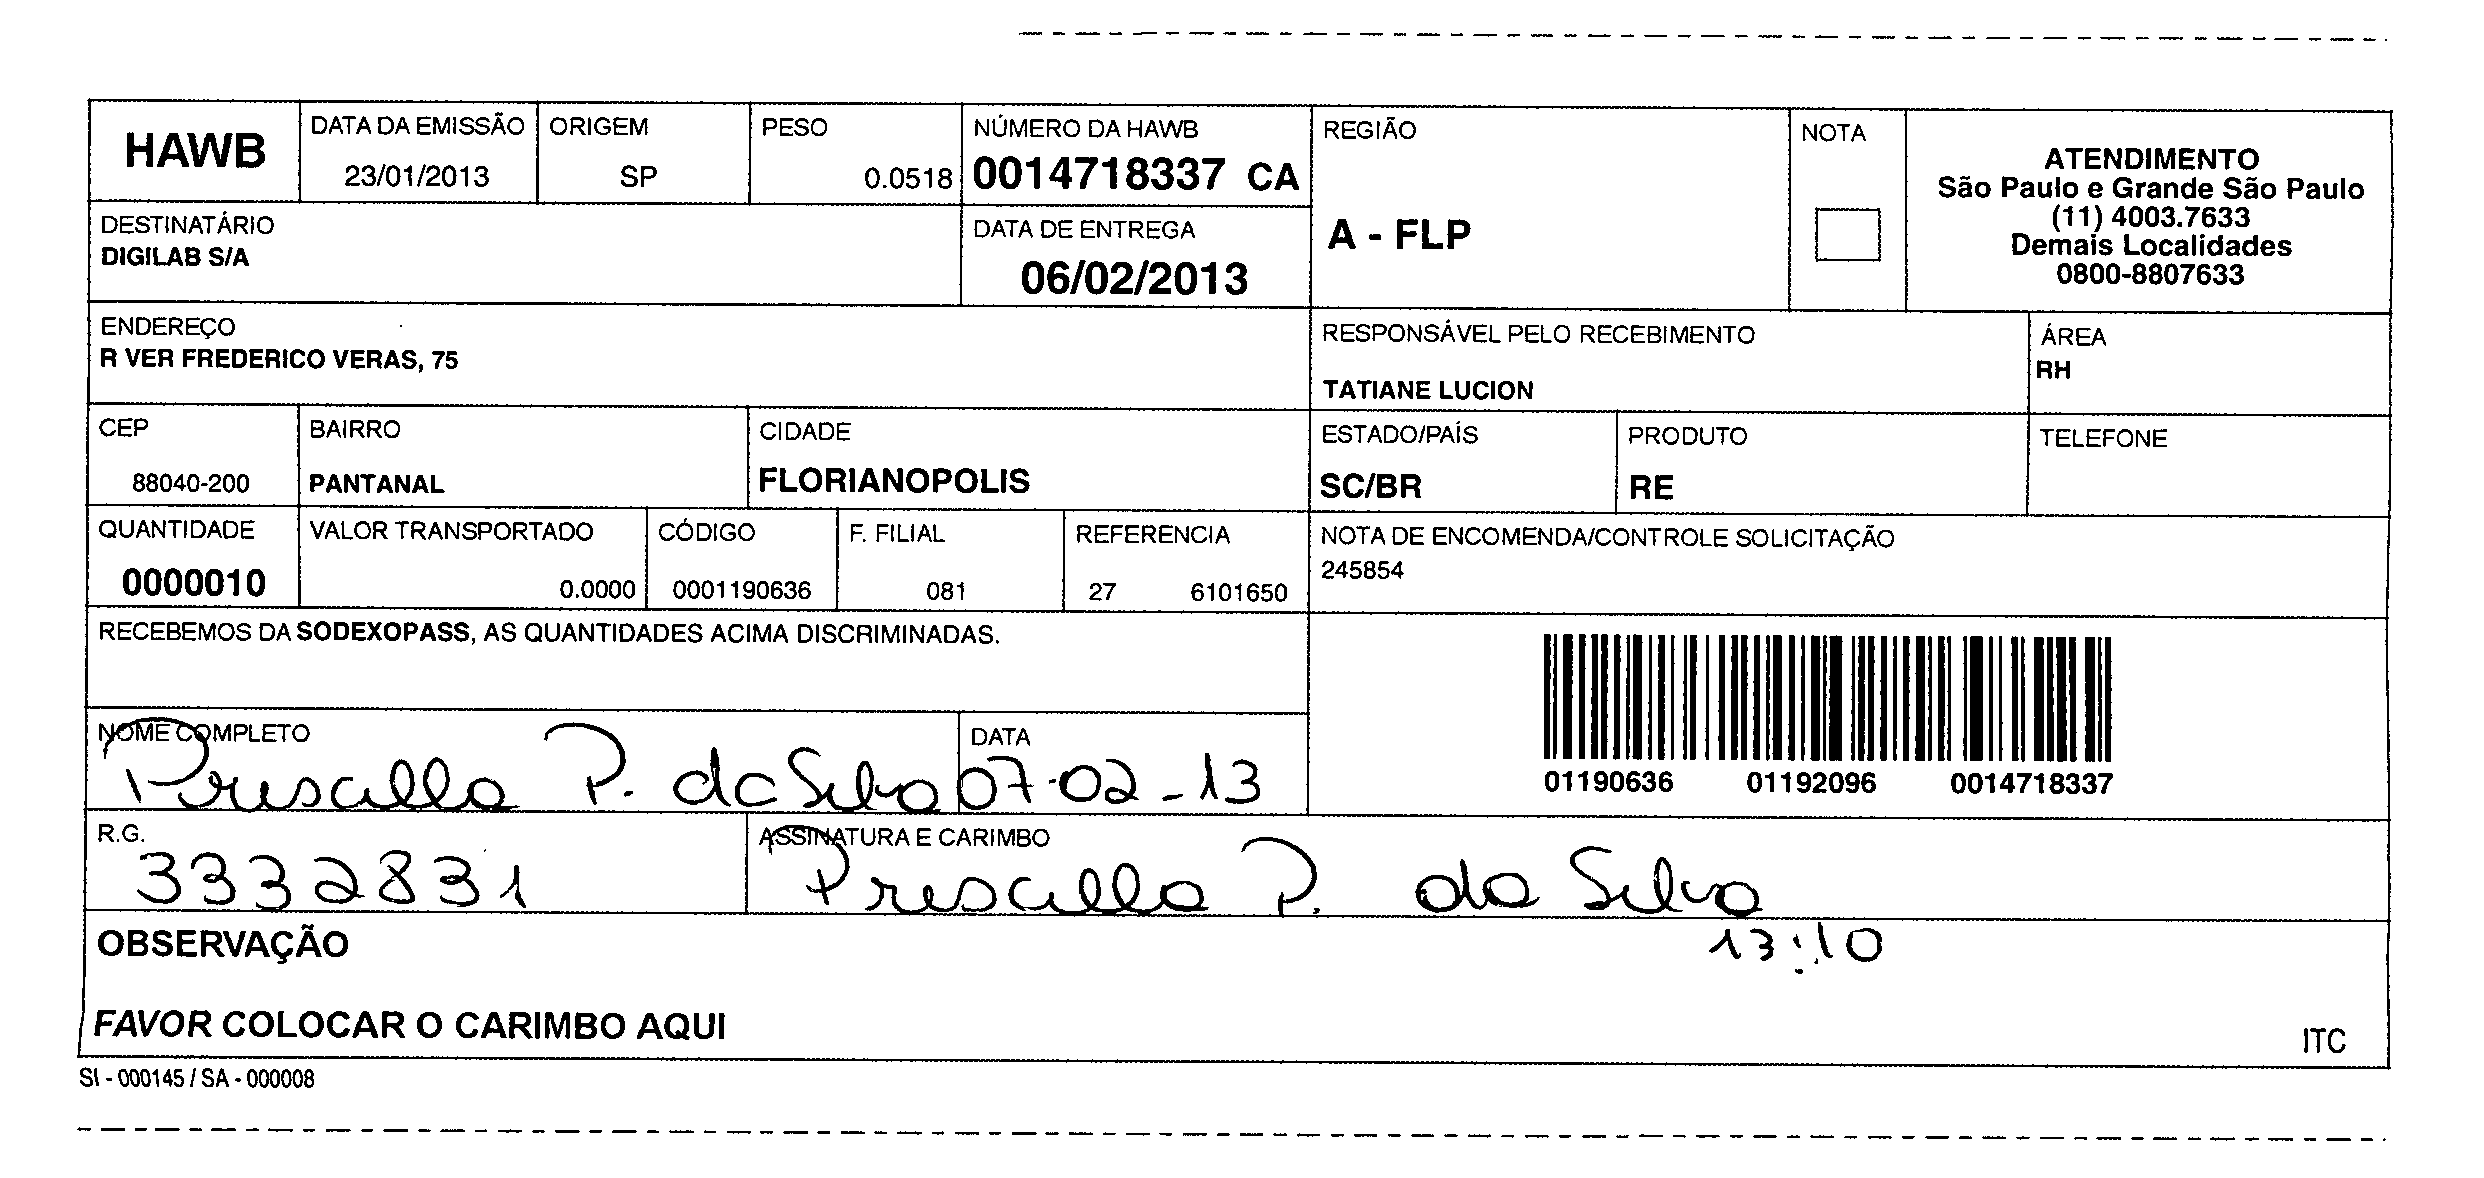 HAWB
DATA DA EMISSÃO
23/01/2013
ORIGEM
SP
PESO
0.0518
NÚMERO DA HAWB
0014718337 CA
REGIÃO
A - FLP
NOTA
ATENDIMENTO
São Paulo e Grande São Paulo
(11) 4003.7633
Demais Localidades
0800-8807633
DESTINATÁRIO
DIGILAB S/A
DATA DE ENTREGA
06/02/2013
ENDEREÇO
R VER FREDERICO VERAS, 75
RESPONSÁVEL PELO RECEBIMENTO
TATIANE LUCION
ÁREA
RH
CEP
88040-200
BAIRRO
PANTANAL
CIDADE
FLORIANOPOLIS
ESTADO/PAÍS
SC/BR
PRODUTO
RE
TELEFONE
QUANTIDADE
0000010
VALOR TRANSPORTADO
0.0000
CÓDIGO
0001190636
F. FILIAL
081
REFERENCIA
27 6101650
NOTA DE ENCOMENDA/CONTROLE SOLICITAÇÃO
245854
RECEBEMOS DA SODEXOPASS, AS QUANTIDADES ACIMA DISCRIMINADAS.
01190636 01192096 0014718337
NOME COMPLETO
Priscilla P. da Silva
DATA
07-02-13
R.G.
3332831
ASSINATURA E CARIMBO
Priscilla P. da Silva
13:10
OBSERVAÇÃO
FAVOR COLOCAR O CARIMBO AQUI
ITC
SI - 000145 / SA - 000008